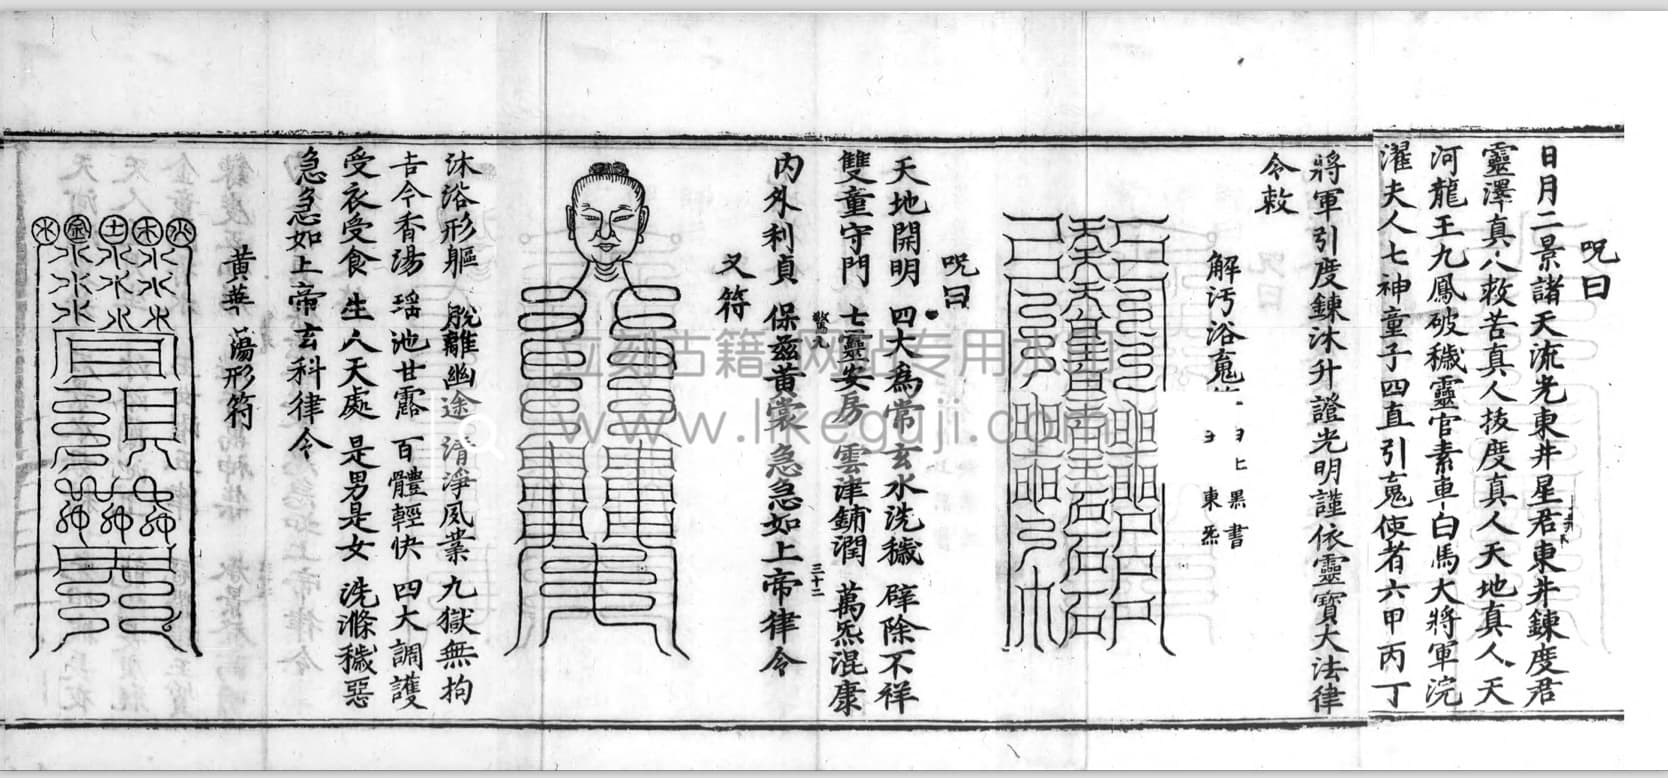 呪曰
日月二景諸天流光東井星君東井鍊度君
靈澤真人救苦真人拔度真人天地真人天
河龍王九鳳破穢靈官素車白馬大將軍浣
濯夫人七神童子四直引䰟使者六甲丙丁
將軍引度鍊沐升證光明謹依靈寶大法律
令敕
解汚浴䰟
黑書
東炁
呪曰
天地開明 四大爲常 玄水洗穢 辟除不祥
雙童守門 七靈安房 雲津鋪潤 萬炁混康
內外利貞 保兹黃裳 急急如上帝律令
三十二
又符
沐浴形軀 脫離幽途 清淨夙業 九獄無拘
吉今香湯 瑶池甘露 百體輕快 四大調護
受衣受食 生人天處 是男是女 洗滌穢惡
急急如上帝玄科律令
黃華蕩形符
火
木
土
金
水
立刻古籍 网站专用水印
www.likeguji.com